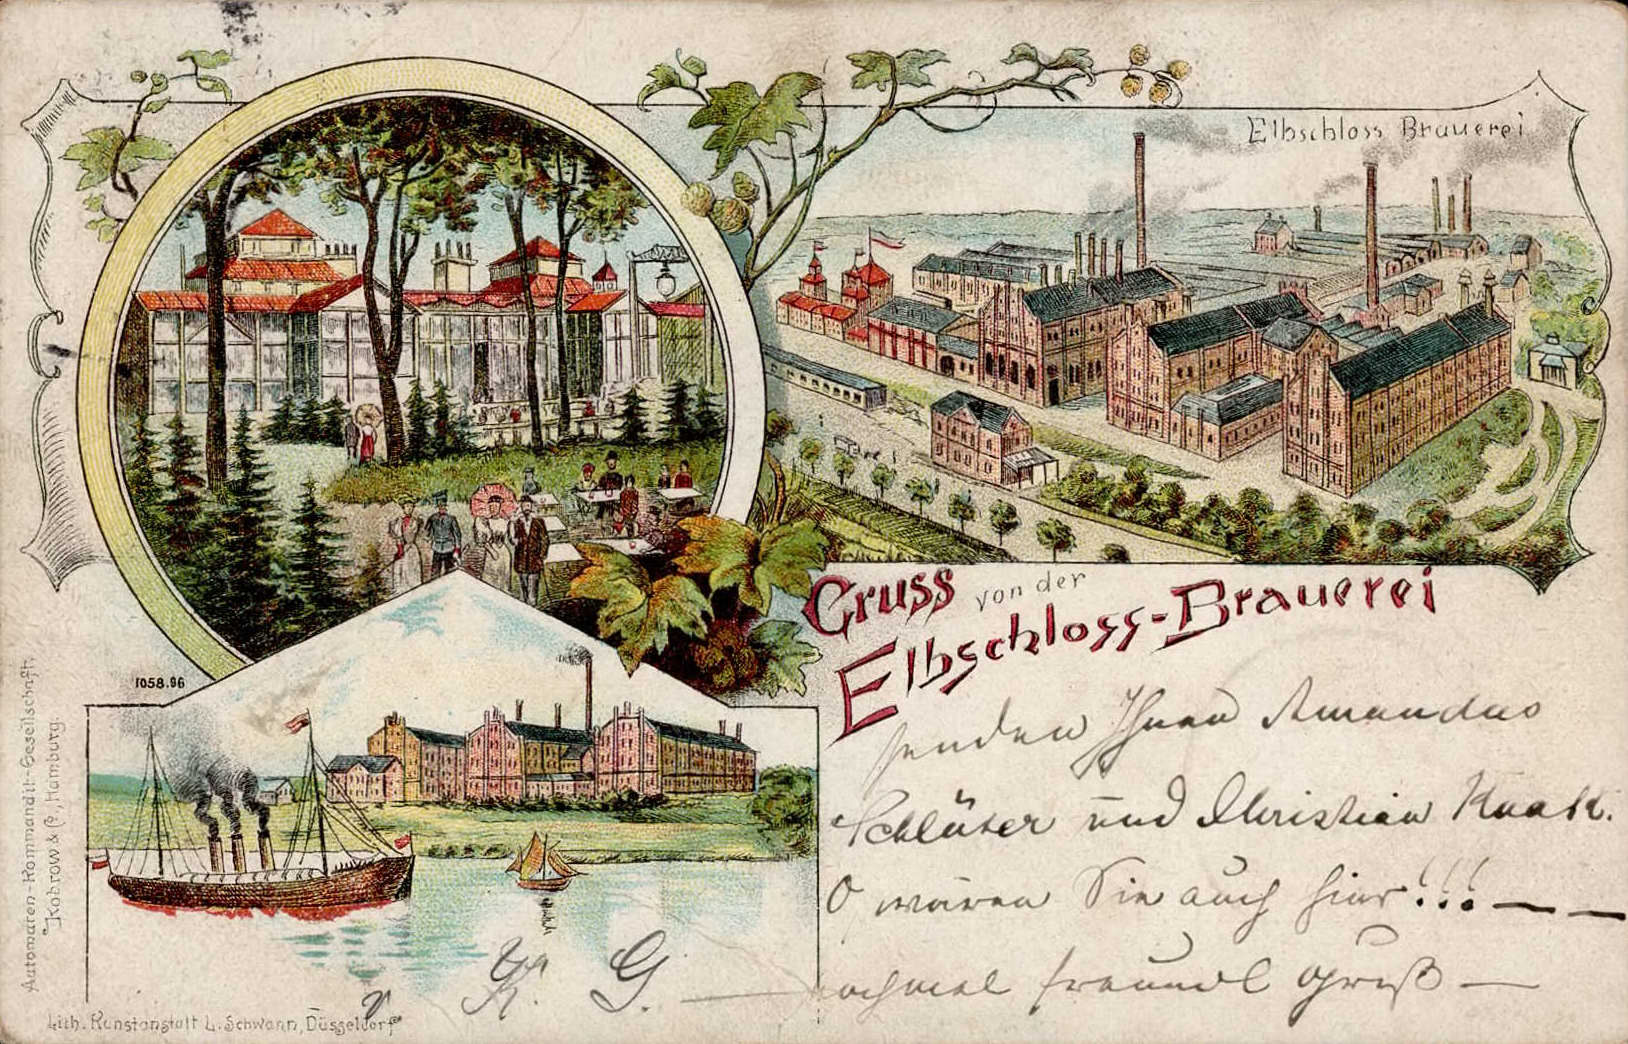 Elbschloss Brauerei
Gruss von der
Elbschloss-Brauerei
senden Ihnen Amandus
Schlüter und Christian Knak.
O wären Sie auch hier!!! — —
Nochmal freundl Gruß —
K. G.
1058.96
Automaten-Kommandit-Gesellschaft,
Kobrow & Co, Hamburg.
Lith. Kunstanstalt L. Schwann, Düsseldorf